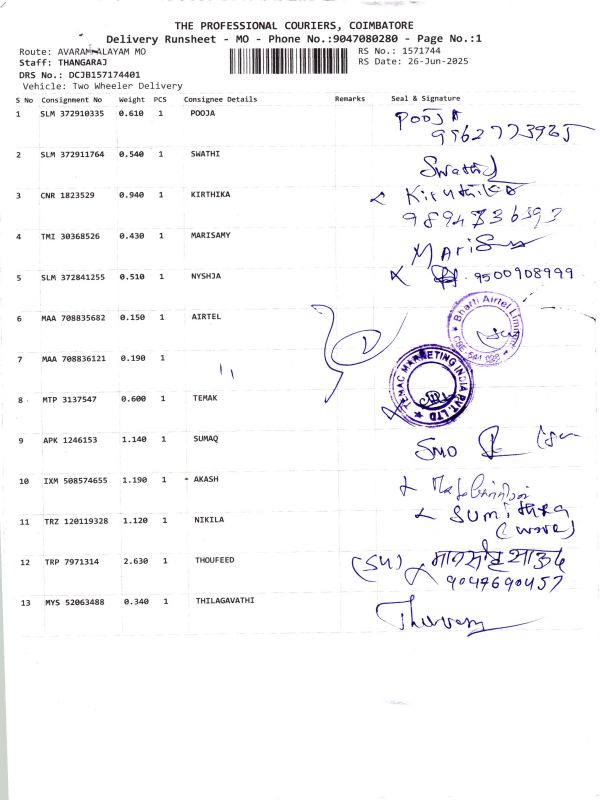 THE PROFESSIONAL COURIERS, COIMBATORE
Delivery Runsheet - MO - Phone No.:9047080280 - Page No.:1
Route: AVARAMPALAYAM MO
RS No.: 1571744
Staff: THANGARAJ
RS Date: 26-Jun-2025
DRS No.: DCJB157174401
Vehicle: Two Wheeler Delivery
S No Consignment No Weight PCS Consignee Details Remarks Seal & Signature
1 SLM 372910335 0.610 1 POOJA POOJA
2 SLM 372911764 0.540 1 SWATHI Swathi
3 CNR 1823529 0.940 1 KIRTHIKA Kiruthika
4 TMI 30368526 0.430 1 MARISAMY
5 SLM 372841255 0.510 1 NYSHJA 9500908999
6 MAA 708835682 0.150 1 AIRTEL Bharti Airtel Limited
7 MAA 708836121 0.190 1 11
8 MTP 3137547 0.600 1 TEMAK TEMAC MARKETING INDIA PVT. LTD
9 APK 1246153 1.140 1 SUMAQ
10 IXM 508574655 1.190 1 AKASH
11 TRZ 120119328 1.120 1 NIKILA Sumithra
12 TRP 7971314 2.630 1 THOUFEED
9047690457
13 MYS 52063488 0.340 1 THILAGAVATHI